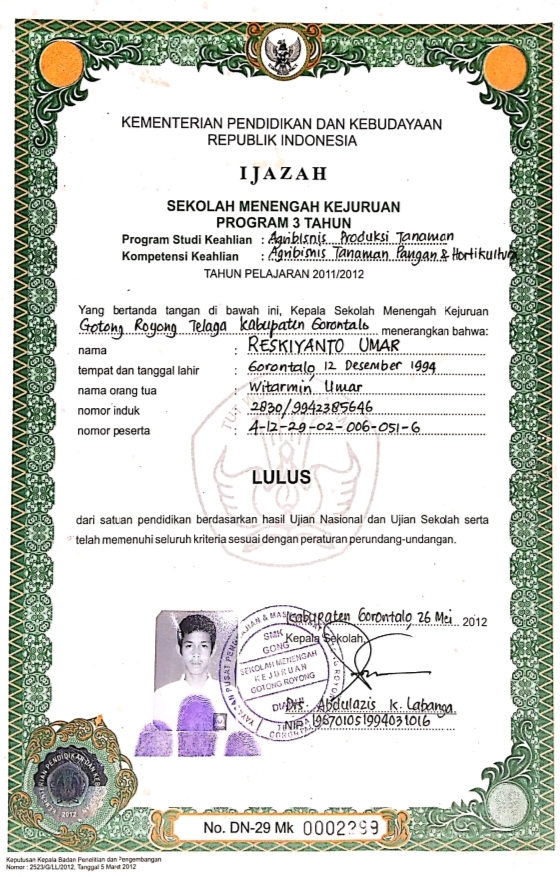 KEMENTERIAN PENDIDIKAN DAN KEBUDAYAAN
REPUBLIK INDONESIA
IJAZAH
SEKOLAH MENENGAH KEJURUAN
PROGRAM 3 TAHUN
Program Studi Keahlian : Agribisnis Produksi Tanaman
Kompetensi Keahlian : Agribisnis Tanaman Pangan & Hortikultura
TAHUN PELAJARAN 2011/2012
Yang bertanda tangan di bawah ini, Kepala Sekolah Menengah Kejuruan
Gotong Royong Telaga Kabupaten Gorontalo menerangkan bahwa:
nama : RESKIYANTO UMAR
tempat dan tanggal lahir : Gorontalo 12 Desember 1994
nama orang tua : Witarmin Umar
nomor induk : 2830/9942385646
nomor peserta : 4-12-29-02-006-051-6
LULUS
dari satuan pendidikan berdasarkan hasil Ujian Nasional dan Ujian Sekolah serta
telah memenuhi seluruh kriteria sesuai dengan peraturan perundang-undangan.
Kabupaten Gorontalo 26 Mei 2012
Kepala Sekolah,
SMK
SEKOLAH MENENGAH
KEJURUAN
GOTONG ROYONG
Drs. Abdulazis K. Labanga
NIP. 196701051994031016
No. DN-29 Mk 0002299
Keputusan Kepala Badan Penelitian dan Pengembangan
Nomor : 2523/G/LL/2012, Tanggal 5 Maret 2012